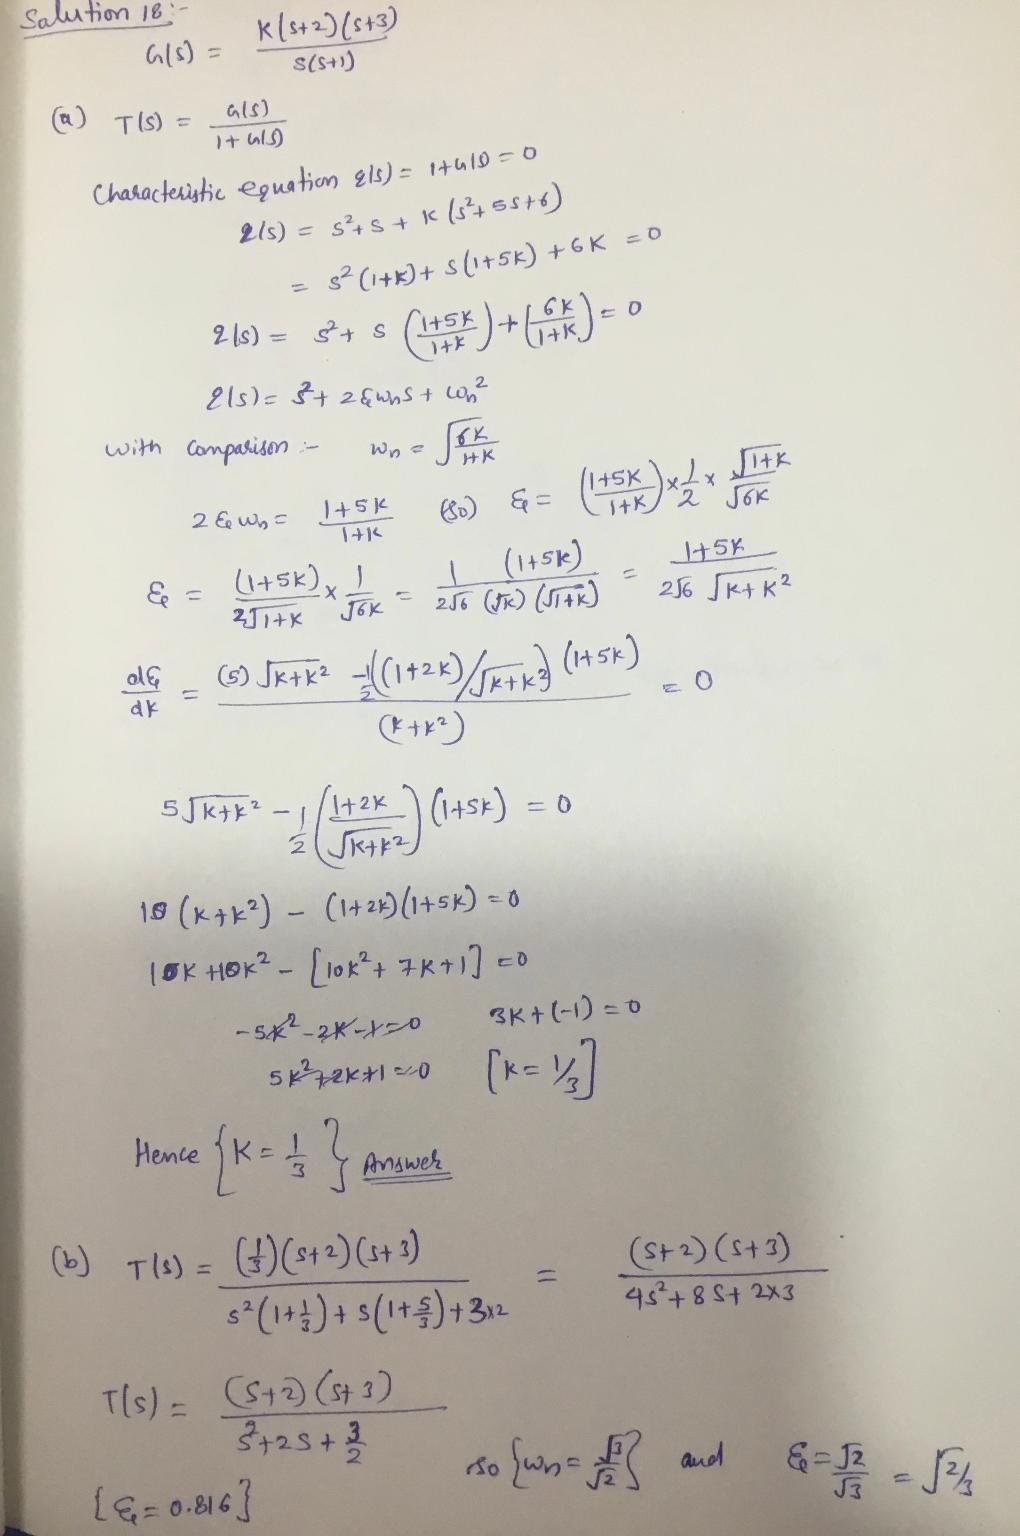 Solution 18:-
G(s) = K(s+2)(s+3) / s(s+1)
(a) T(s) = G(s) / 1+G(s)
Characteristic equation q(s) = 1+G(s) = 0
q(s) = s²+s + K (s²+5s+6)
= s² (1+K) + s(1+5K) + 6K = 0
q(s) = s² + s (1+5K / 1+K) + (6K / 1+K) = 0
q(s) = s² + 2ξωns + ωn²
with comparison :- ωn = √(6K / 1+K)
2ξωn = 1+5K / 1+K (So) ξ = (1+5K / 1+K) × 1/2 × √1+K / √6K
ξ = (1+5K) / 2√1+K × 1 / √6K = 1 (1+5K) / 2√6 (√K) (√1+K) = 1+5K / 2√6 √K+K²
dξ / dK = (5) √K+K² - 1/2 ((1+2K) / √K+K²) (1+5K) / (K+K²) = 0
5√K+K² - 1/2 (1+2K / √K+K²) (1+5K) = 0
10 (K+K²) - (1+2K)(1+5K) = 0
10K +10K² - [10K² + 7K+1] = 0
-5K² -2K -1 = 0 3K + (-1) = 0
5K² +2K +1 = 0 [K = 1/3]
Hence {K = 1/3} Answer
(b) T(s) = (1/3)(s+2)(s+3) / s²(1+1/3) + s(1+5/3) + 3×2 = (s+2)(s+3) / 4s² + 8s + 2×3
T(s) = (s+2)(s+3) / s²+2s+3/2
so {ωn = √3/√2} and ξ = √2/√3 = √2/3
[ξ = 0.816}